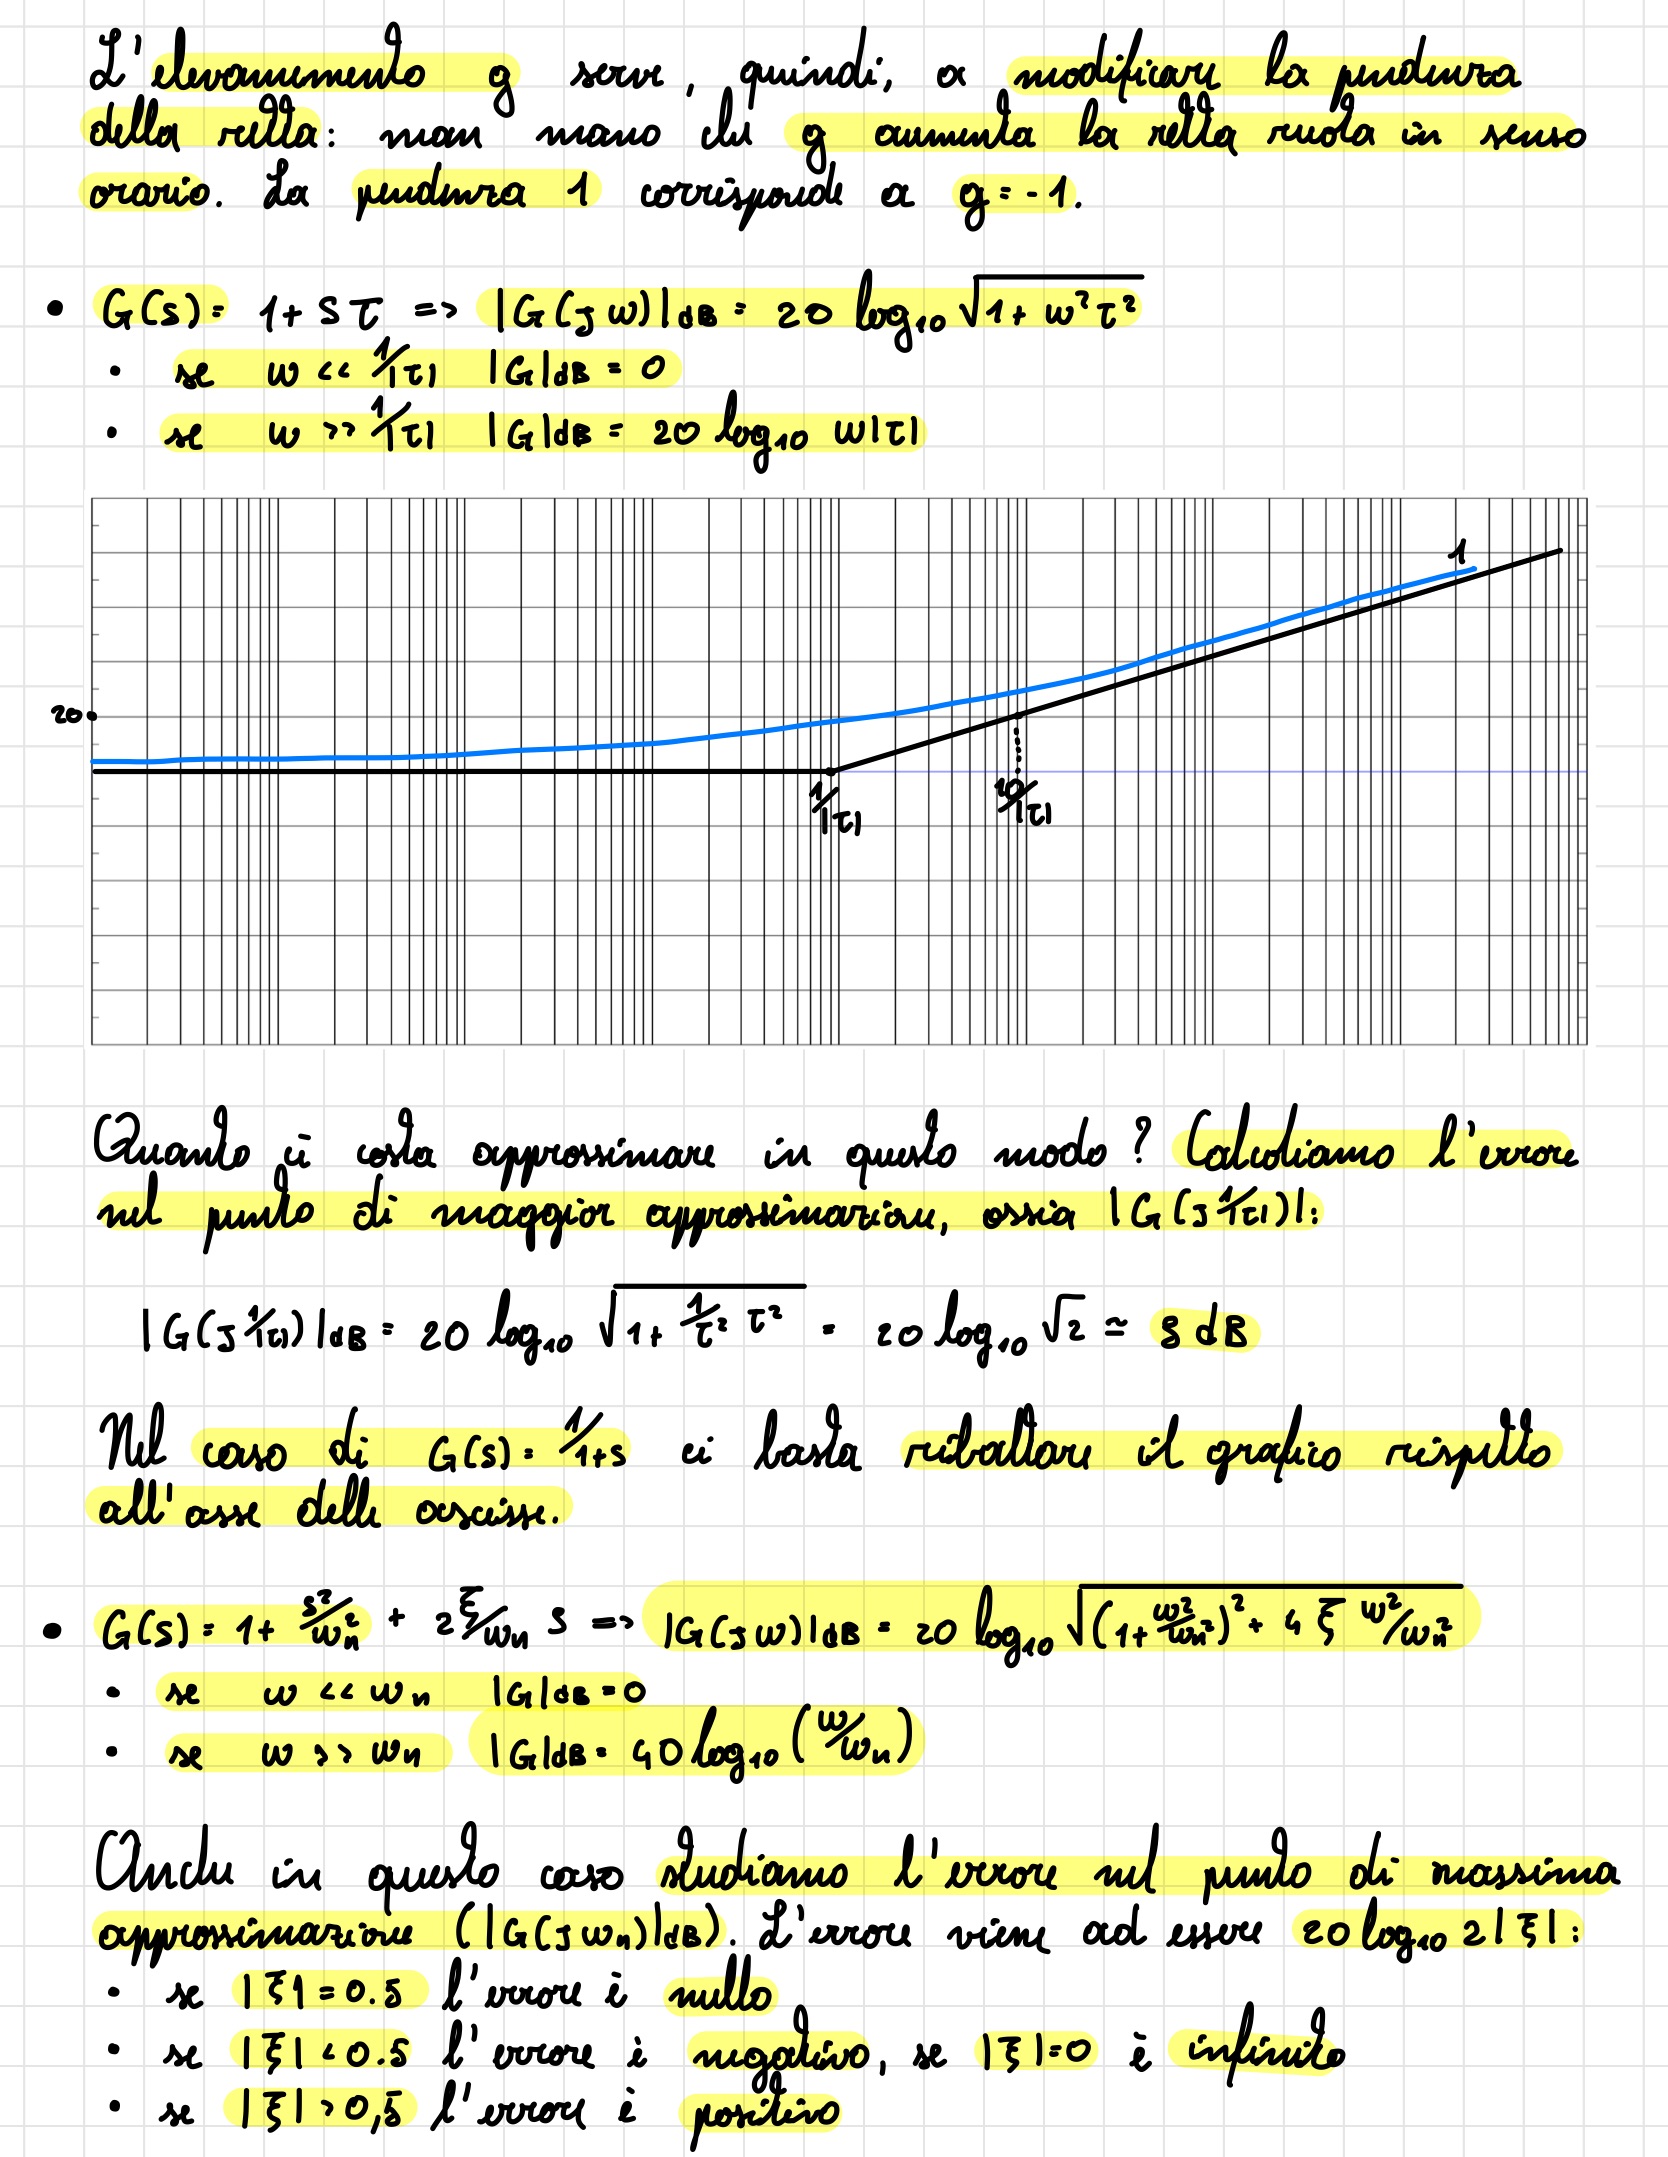 L'elevamento g serve, quindi, a modificare la pendenza
della retta: man mano che g aumenta la retta ruota in senso
orario. La pendenza 1 corrisponde a g=-1.
• G(s)= 1+ sτ => |G(jω)|dB = 20 log₁₀ √(1+ω²τ²)
• se ω << 1/|τ| |G|dB = 0
• se ω >> 1/|τ| |G|dB = 20 log₁₀ ω|τ|
1
20
1/|τ| 10/|τ|
Quanto ci costa approssimare in questo modo? Calcoliamo l'errore
nel punto di maggior approssimazione, ossia |G(j 1/|τ|)|:
|G(j 1/|τ|)|dB = 20 log₁₀ √(1+ 1/τ² τ²) = 20 log₁₀ √2 ≃ 3 dB
Nel caso di G(s)= 1/1+s ci basta ribaltare il grafico rispetto
all'asse delle ascisse.
• G(s)= 1+ s²/ωn² + 2 ξ/ωn s => |G(jω)|dB = 20 log₁₀ √((1+ ω²/ωn²)² + 4 ξ ω²/ωn²)
• se ω << ωn |G|dB=0
• se ω >> ωn |G|dB= 40 log₁₀ (ω/ωn)
Anche in questo caso studiamo l'errore nel punto di massima
approssimazione (|G(jωn)|dB). L'errore viene ad essere 20 log₁₀ 2|ξ|:
• se |ξ|=0.5 l'errore è nullo
• se |ξ|<0.5 l'errore è negativo, se |ξ|=0 è infinito
• se |ξ|>0,5 l'errore è positivo